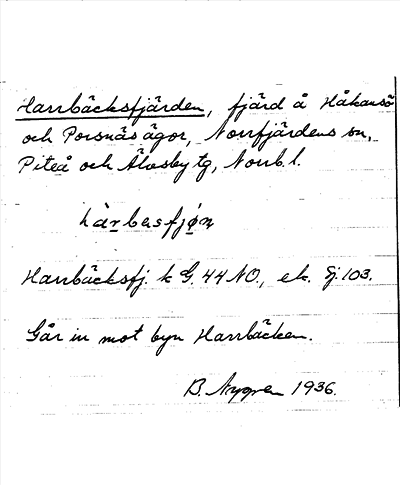 Harrbäcksfjärden, fjärd å Håkansö
och Porsnäs ägor, Norrfjärdens sn,
Piteå och Älvsby tg, Norrb. l.
Harrbäcksfj. k G. 44 NO., ek. bj. 103.
Går in mot byn Harrbäcken.
B. Nygren 1936.